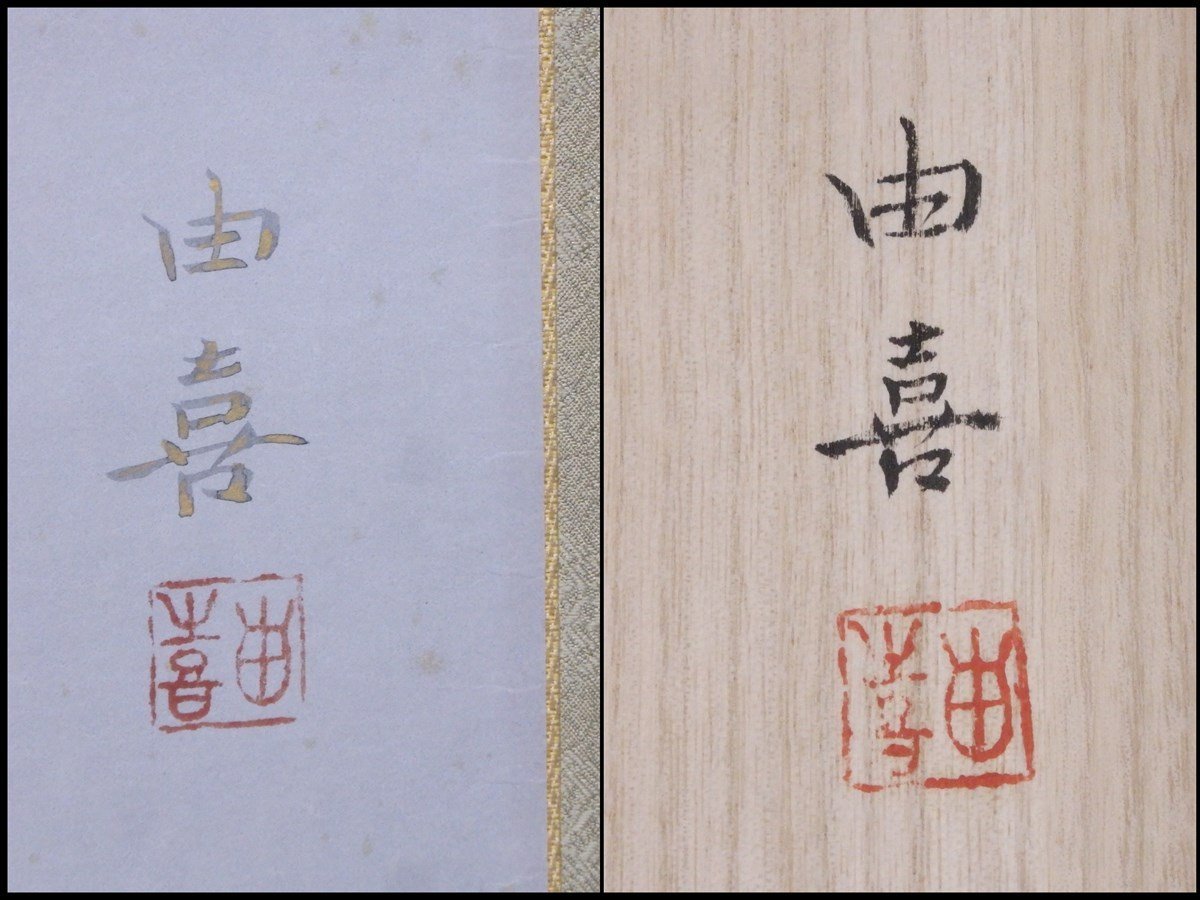 由喜
由喜
由喜
由喜